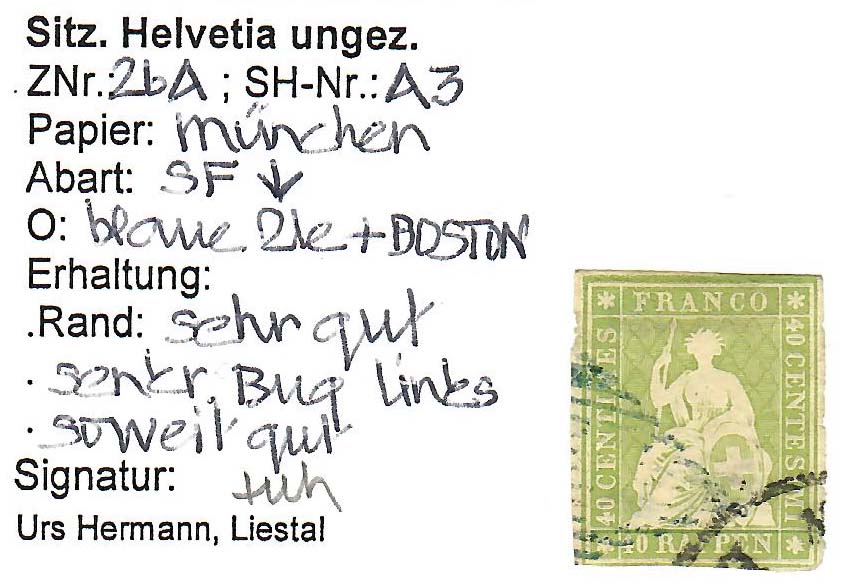 Sitz. Helvetia ungez.
ZNr.: 2bA ; SH-Nr.: A3
Papier: München
Abart: SF ↓
O: blaue + BOSTON
Erhaltung:
.Rand: sehr gut
. senkr. Bug links
. soweit gut
Signatur:
Urs Hermann, Liestal
FRANCO
40 CENTIMES
40 CENTESIMI
40 RAPPEN